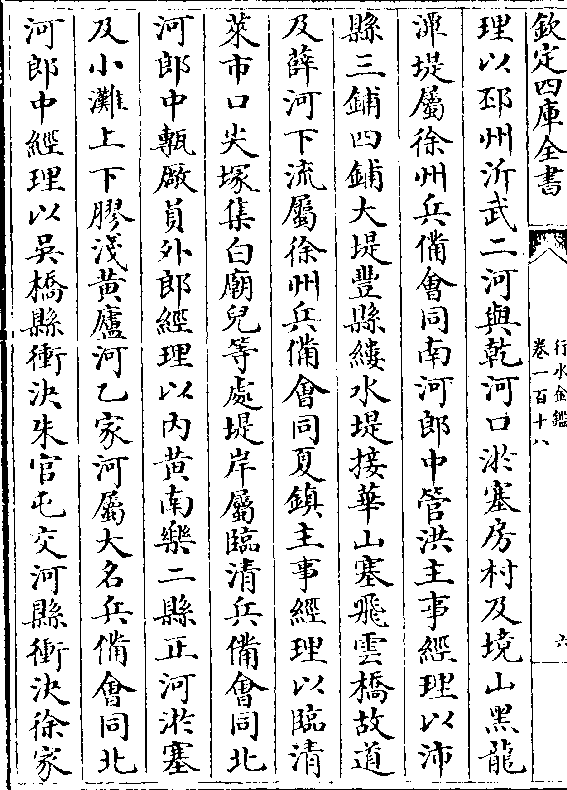 欽定四庫全書
行水金鑑
卷一百十八
六
理以邳州沂武二河與乾河口淤塞房村及境山黑龍
潭堤屬徐州兵備會同南河郎中管洪主事經理以沛
縣三鋪四鋪大堤豐縣縷水堤接華山塞飛雲橋故道
及薛河下流屬徐州兵備會同夏鎮主事經理以臨清
菜市口尖塚集白廟兒等處堤岸屬臨清兵備會同北
河郎中甎廠員外郎經理以內黃南樂二縣正河淤塞
及小灘上下膠淺黃廬河乙家河屬大名兵備會同北
河郎中經理以吳橋縣衝決朱官屯交河縣衝決徐家